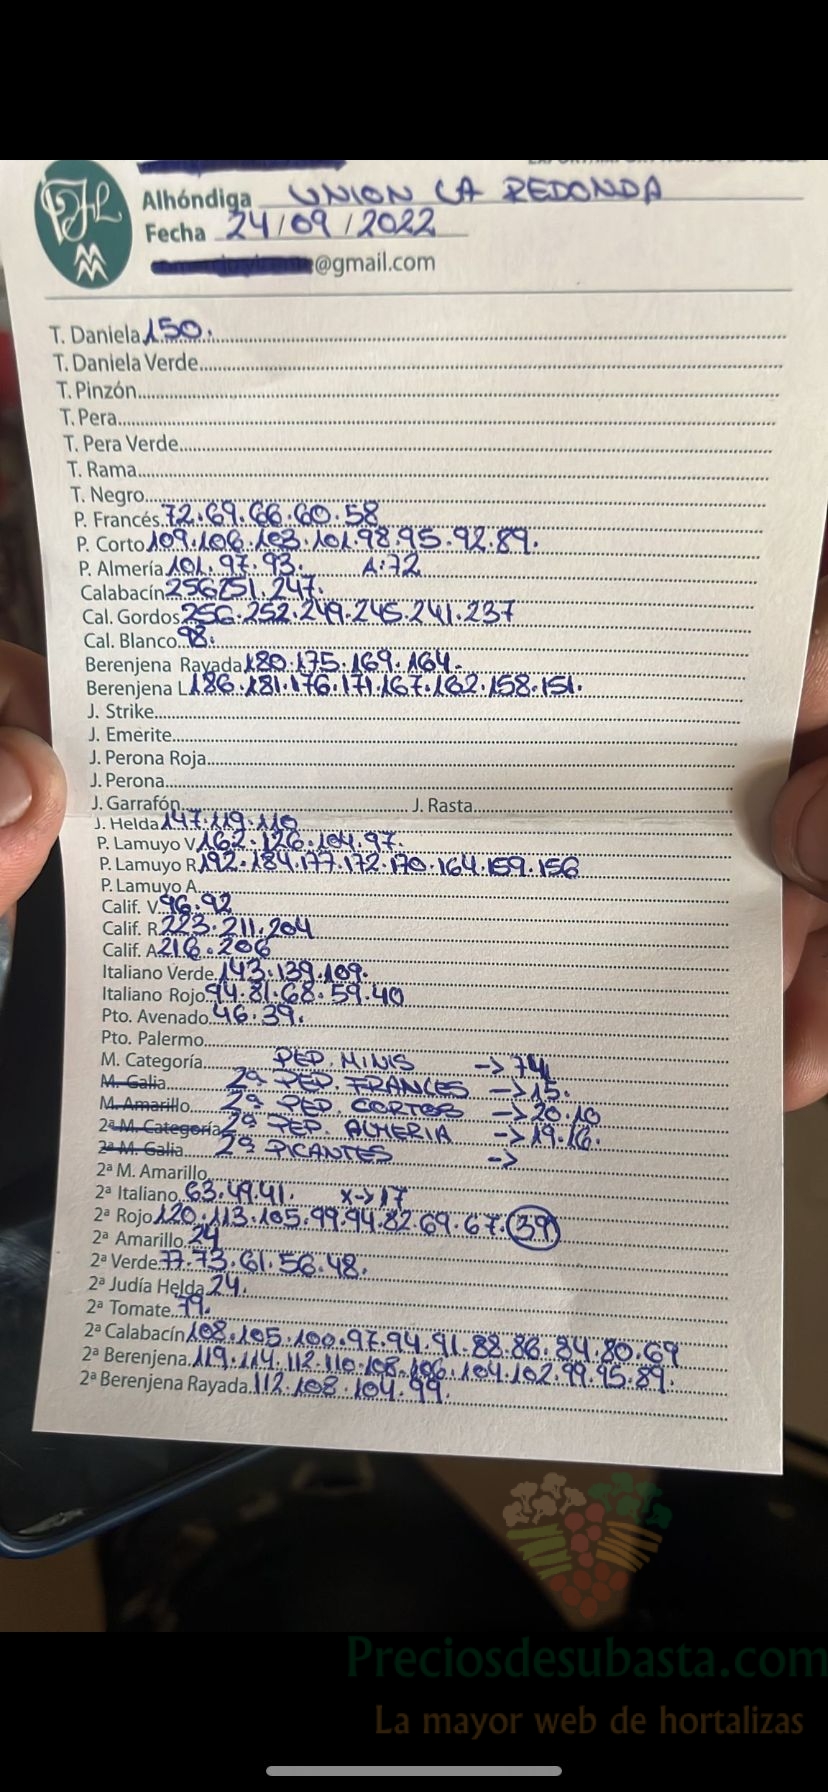 Alhóndiga UNION LA REDONDA
Fecha 24/09/2022
@gmail.com
T. Daniela 150.
T. Daniela Verde
T. Pinzón
T. Pera
T. Pera Verde
T. Rama
T. Negro
P. Francés 72.69.66.60.58
P. Corto 109.106.103.101.98.95.92.89.
P. Almería 101.97.93. A:72
Calabacín 256251.247.
Cal. Gordos 256.252.249.245.241.237
Cal. Blanco 98.
Berenjena Rayada 180.175.169.164.
Berenjena L 186.181.176.171.167.162.158.151.
J. Strike
J. Emerite
J. Perona Roja
J. Perona
J. Garrafón J. Rasta
J. Helda 147.119.110
P. Lamuyo V 162.126.104.97.
P. Lamuyo R 192.184.177.172.170.164.159.156
P. Lamuyo A
Calif. V 96.92
Calif. R 223.211.204
Calif. A 216.206
Italiano Verde 143.139.109.
Italiano Rojo 94.81.68.59.40
Pto. Avenado 46.39.
Pto. Palermo
M. Categoría PEP. MINIS -> 74
M. Galia 2ª PEP. FRANCES -> 15.
M. Amarillo 2ª PEP. CORTOS -> 20.10
2ª M. Categoría 2ª PEP. ALMERIA -> 19.16.
2ª M. Galia 2ª PICANTES ->
2ª M. Amarillo
2ª Italiano 63.49.41. X->17
2ª Rojo 120.113.105.99.94.82.69.67.39
2ª Amarillo 24
2ª Verde 77.73.61.56.48.
2ª Judía Helda 24.
2ª Tomate 79.
2ª Calabacín 108.105.100.97.94.91.88.86.84.80.69
2ª Berenjena 119.114.112.110.108.106.104.102.99.95.89.
2ª Berenjena Rayada 112.108.104.99.
Preciosdesubasta.com
La mayor web de hortalizas